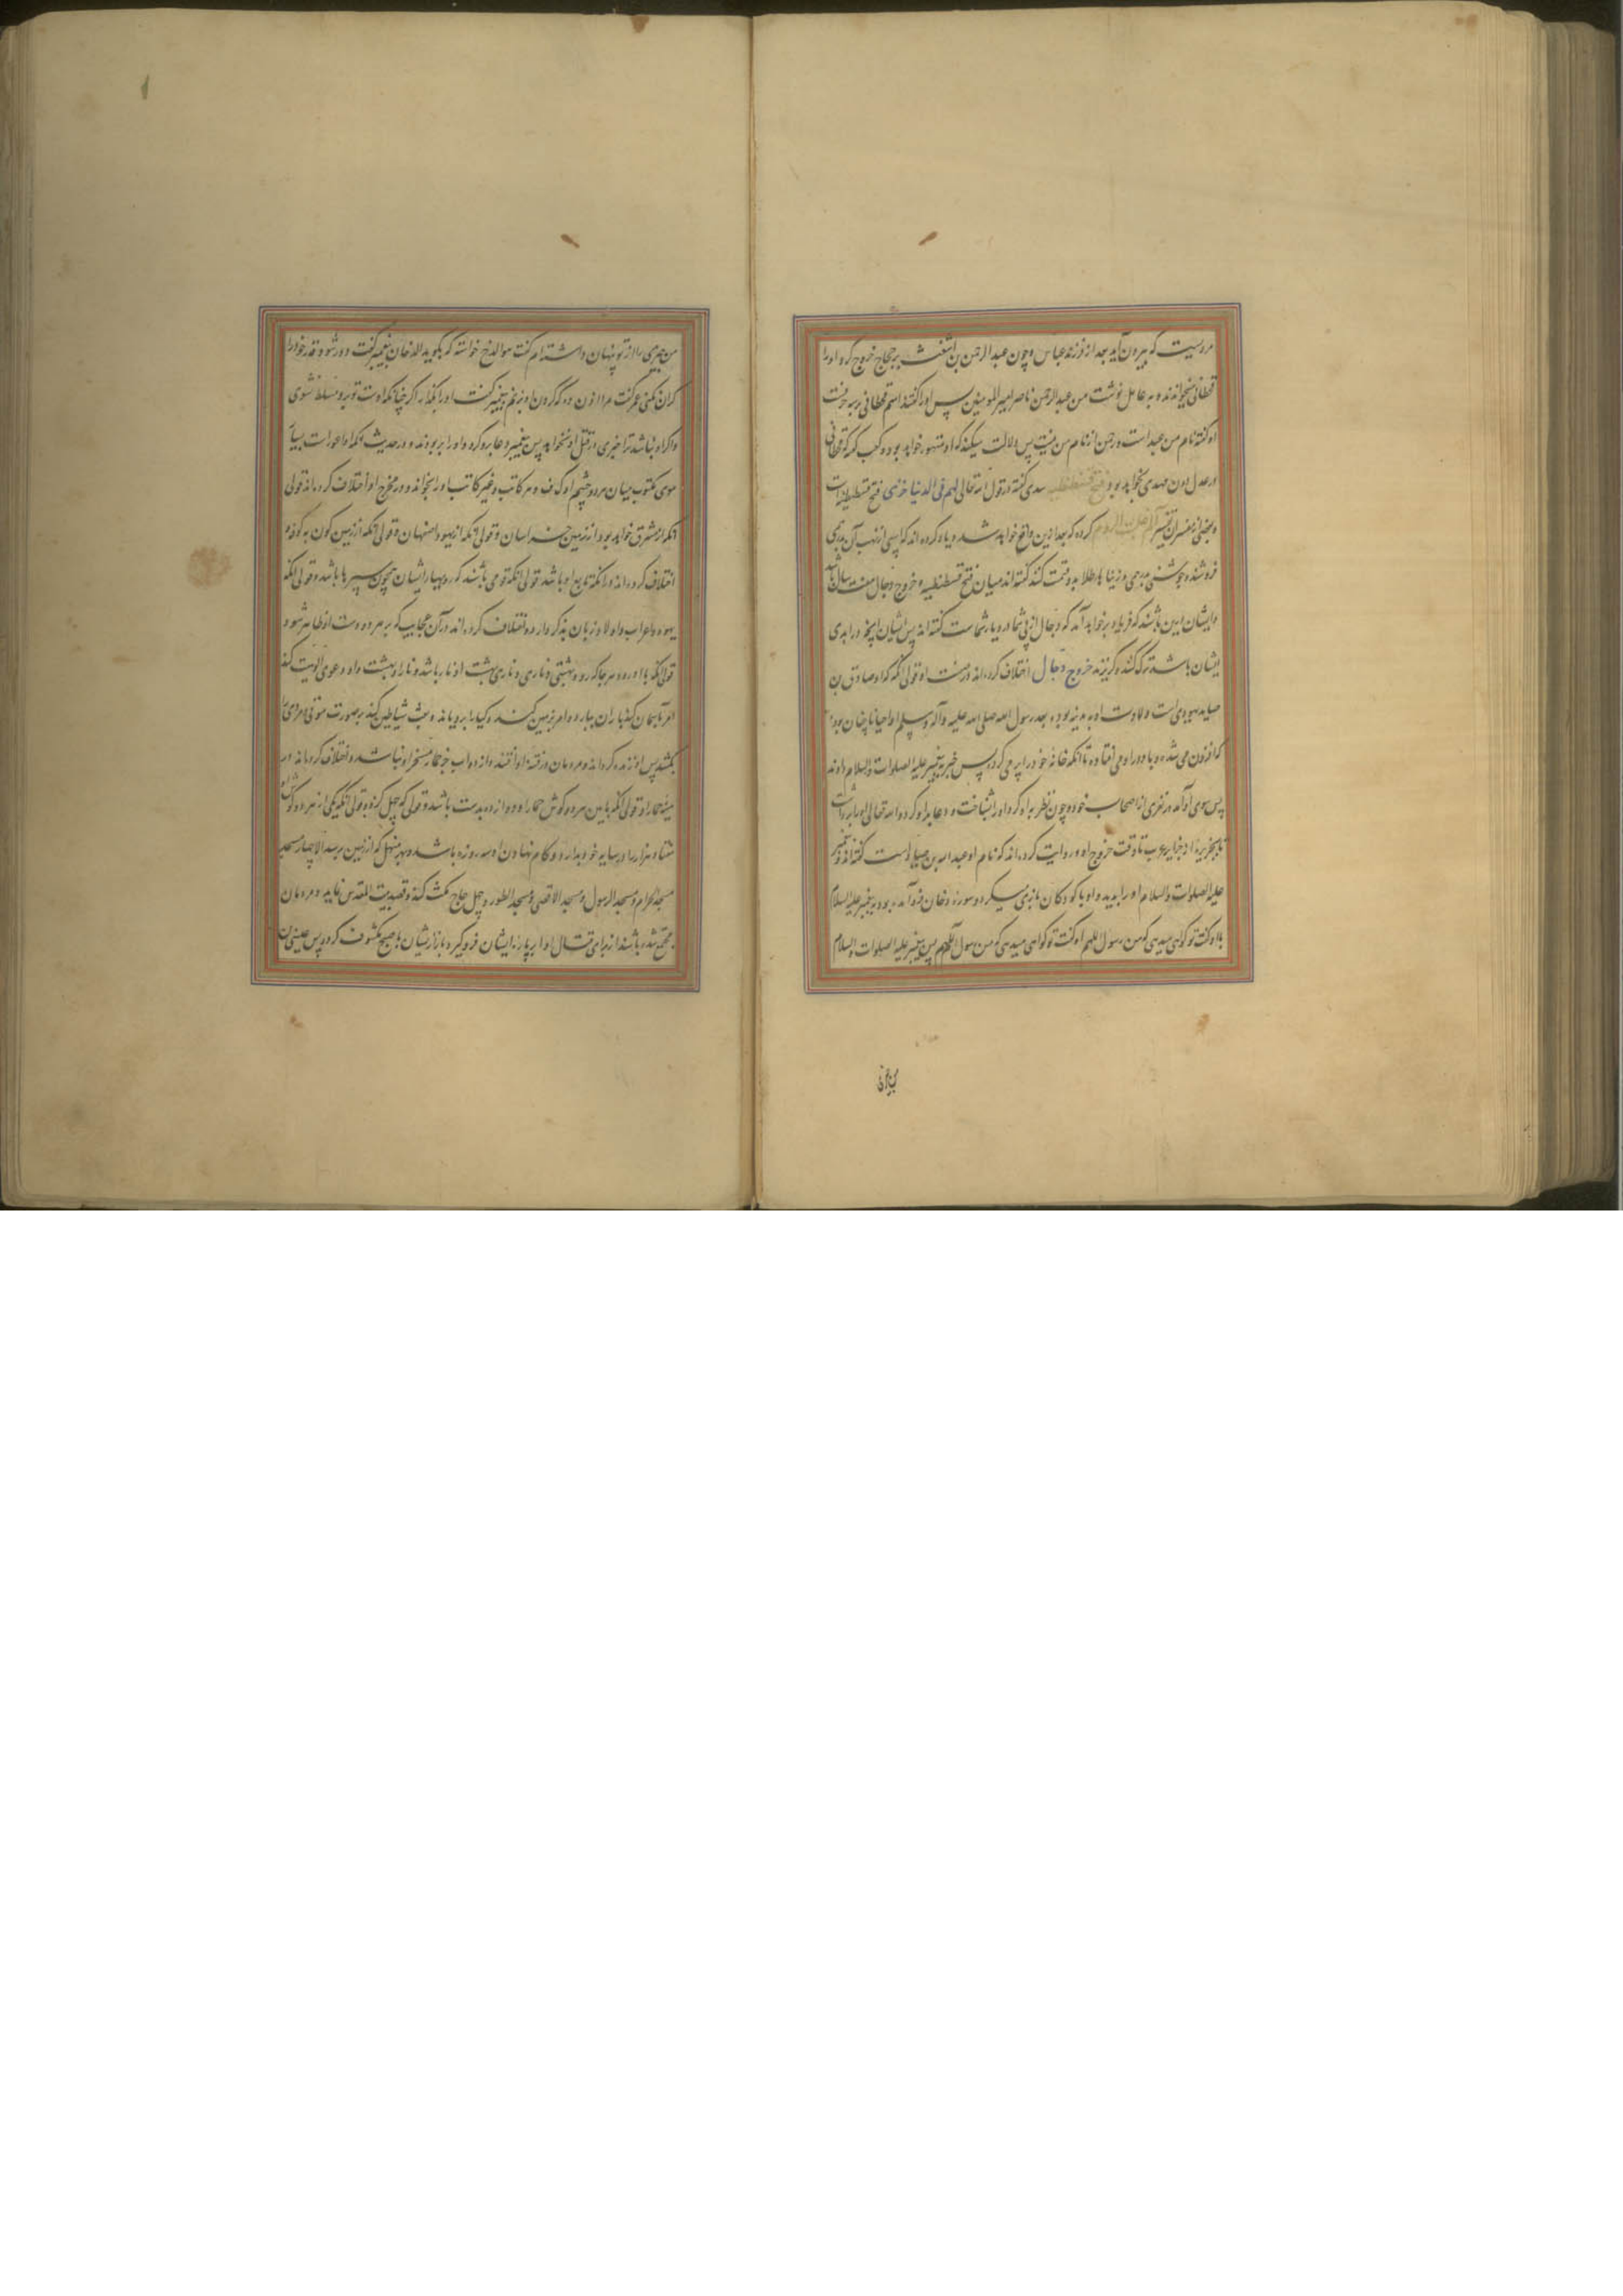 مردیست که بیرون آید بعد از فرزند عباس و چون عبدالرحمن بن اشعث بر حجاج خروج کرد او را
قحطانی میخواندند و به عامل نوشت من عبدالرحمن ناصر امیر المومنین پس او را گفتند اسم قحطانی بر سه حرفست
او گفته نام من عبد است و رحمن از نام من نیست پس دلالت میکند که او مشهور خواهد بود و کعب گفته که قحطانی
در عدل دون مهدی نخواهد بود فتح قسطنطنیه سدی گفته در قول الله تعالی لهم فی الدنیا خزی فتح قسطنطنیه است
و بعضی از مفسران تفسیر الم غلبت الروم کرده که بعد ازین واقع خواهد شد و یاد کرده اند که اسپی از نهب آن بدری
فروشند و جوشنی بدرمی و زنیا ها طلا بدو قسمت کنند گفته اند میان فتح قسطنطنیه و خروج دجال هفت سال باشد
و ایشان درین باشند که فریاد برخواهد آمد که دجال از پی شما در دیار شماست گفته اند پس ایشان انچه در ایدی
ایشان باشد ترک کنند و گریزند خروج دجال اختلاف کرده اند در صفت او قولی انکه او صادق بن
صاید یهودی است و ولادت او بمدینه بوده بعهد رسول الله صلی الله علیه و آله و سلم او احیانا چنان بود
که افزون می شده و باد در او می افتاده تا آنکه خانه خود را پر می کرده پس خبر به پیغمبر علیه الصلوات والسلام دادند
پس سوی او آمد در نفری از اصحاب خود و چون نظر بدو کرد او را شناخت و دعا بدو کرد و الله تعالی او را برداشت
تا بجزیره از جزایر عرب تا وقت خروج او و روایت کرده اند که نام او عبدالله بن صیاد است گفته اند پیغمبر
علیه الصلوات والسلام او را بدید و او با کودکان بازی میکرد و سوره دخان فرو آمده بود پیغمبر علیه السلام
با او گفت تو گواهی میدهی که من رسول اللهم او گفت تو گواهی میدهی که من رسول اللهم پس پیغمبر علیه الصلوات والسلام
من چیزی را از تو پنهان داشته ام گفت هو الدخ خواسته که بگوید الدخان پیغمبر گفت دور شو و قدر خود را
گران نکنی عمر گفت مرا اذن ده که گردن او بزنم پیغمبر گفت او را بگذار اگر چنانکه اوست تو برو مسلط نشوی
و اگر او نباشد ترا خیری در قتل او نخواهد پس پیغمبر دعا برو کرد و او را بربودند و در حدیث
موی مکتوب میان هر دو چشم او ک ف ر هر کاتب و غیر کاتب او را بخواند و در مخرج او اختلاف کرده اند قولی
انکه از مشرق خواهد بود از زمین خراسان و قولی انکه از یهود اصفهان و قولی انکه از زمین کوفه
اختلاف کرده اند در انکه تابع او باشد قولی انکه قومی باشند که رویهای ایشان چون سپرها باشد و قولی انکه
یهود و اعراب و اولاد زنا و اختلاف کرده اند در آن عجایب که بر هر دو دست او ظاهر شود
قولی انکه با او رود هر جا که رود بهشتی و ناری و ناری بهشت او نار باشد و نار او بهشت و او دعوی الوهیت کند
امر بآسمان کند باران ببارد و امر بزمین کند و گیاه برویاند و بعث شیاطین کند بر صورت موتی مردی را
بکشد پس او زنده گرداند و مردمان در فتنه او افتند و از دواب جز حمار مسخر او نباشد و اختلاف کرده اند در
حمار و قولی انکه مابین هر دو گوش حمار او دوازده بدست باشد و قولی که چهل گز و قولی انکه یکی از هر دو گوش او
هفتاد هزار را در سایه خود بدارد و گام نهادن او سه روزه باشد و بهر منهل که از زمین برسد الا چهار مسجد
مسجد الحرام و مسجد الرسول و مسجد الاقصی و مسجد الطور و چهل صباح مکث کند و قصد بیت المقدس نماید و مردمان
مجتمع شده باشند از برای قتال او ابر پاره ایشان فرو گیرد باز از ایشان تا صبح مکشوف گردد پس عیسی بن